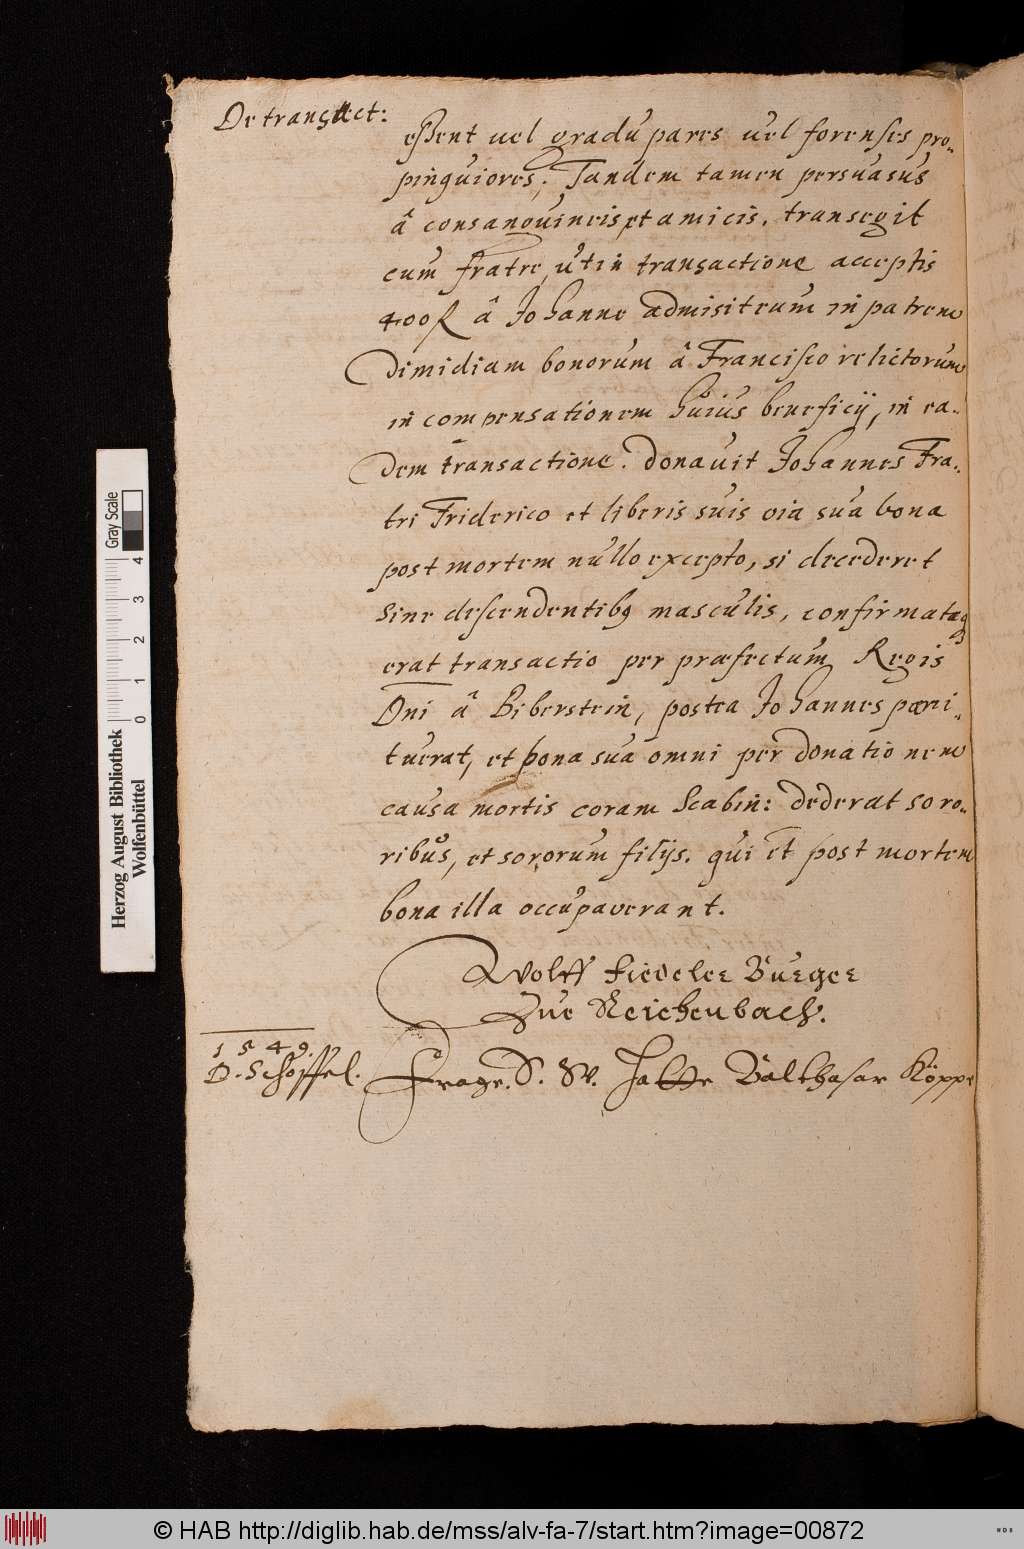 De transact:
essent uel gradu pares uel forenses pro-
pinguiores, Tandem tamen persuasus
â consanguineis et amicis, transegit
cum fratre, ut in transactione acceptis
400 fl â Johanne admisit eum in patrem
dimidiam bonorum â Francisco relictorum
in compensationem huius beneficij, in ea-
dem transactione. donauit Johannes Fra-
tri Friderico et liberis suis oia sua bona
post mortem nullo excepto, si decederet
sine descendentibus masculis, confirmataque
erat transactio per præfectum Regis
Dni â Biberstein, postea Johannes pœni-
tuerat, et bona sua omni per donationem
causa mortis coram Scabin: dederat soro-
ribus, et sororum filijs. qui et post mortem
bona illa occupauerant.
Wolff Fiedeler Burger
Zue Reichenbach.
1549.
D. Schöffel. Frage. D. W. Hatte Balthasar Köppe
Herzog August Bibliothek
Wolfenbüttel
0 1 2 3 4
Gray Scale
© HAB http://diglib.hab.de/mss/alv-fa-7/start.htm?image=00872